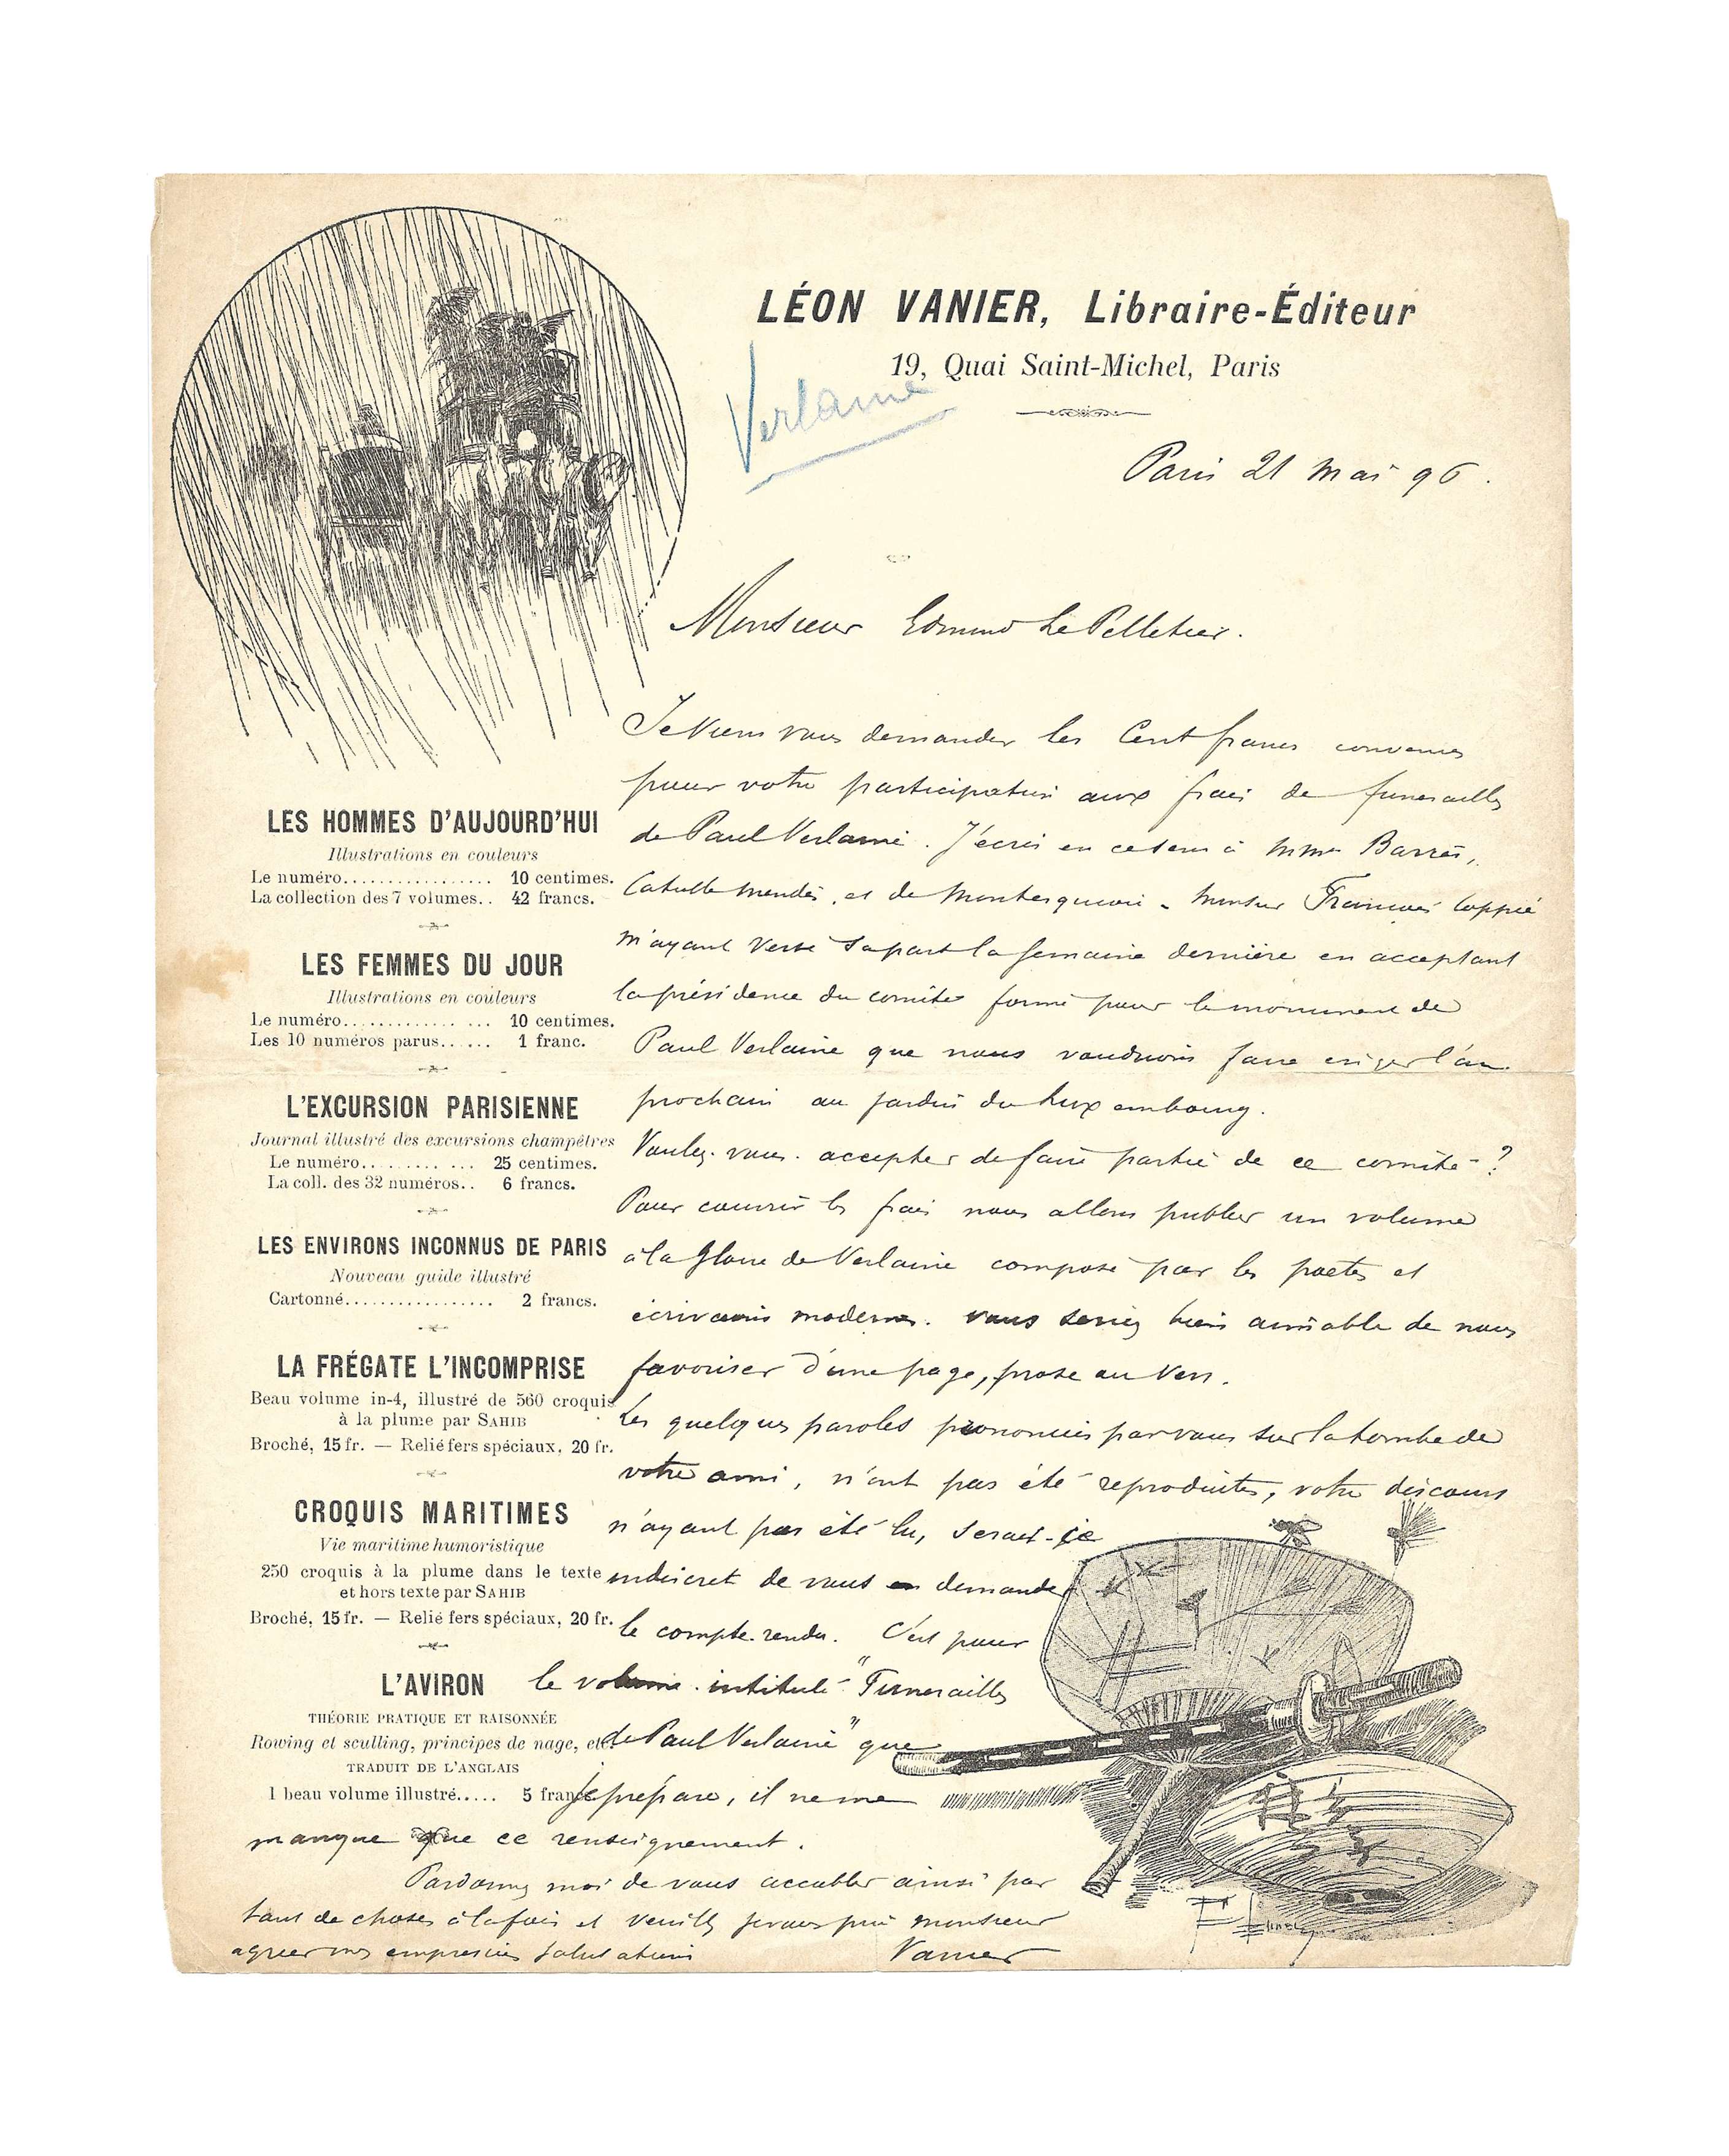 LÉON VANIER, Libraire-Éditeur
19, Quai Saint-Michel, Paris
Verlaine
Paris 21 Mai 96.
Monsieur Edmond Le Pelletier.
Je viens vous demander les Cent francs convenus
pour votre participation aux frais de funerailles
de Paul Verlaine. J'écris en ce sens à Mmrs Barrès,
Catulle Mendès, et de Montesquiou - Monsieur François Coppée
m'ayant versé sa part la semaine dernière en acceptant
la présidence du comité formé pour le monument de
Paul Verlaine que nous voudrions faire eriger l'an
prochain au jardin du Luxembourg.
Voulez-vous accepter de faire partie de ce comité ?
Pour couvrir les frais nous allons publier un volume
à la Gloire de Verlaine composé par les poetes et
écrivains modernes. Vous seriez bien aimable de nous
favoriser d'une page, prose ou vers.
Les quelques paroles prononcées par vous sur la tombe de
votre ami, n'ont pas été reproduites, votre discours
n'ayant pas été lu, serait-ce
indiscret de vous en demander
le compte-rendu. C'est pour
le volume intitulé "Funerailles
de Paul Verlaine" que
je prépare, il ne me
manque que ce renseignement.
Pardonnez moi de vous accabler ainsi par
tant de choses à la fois et veuillez je vous prie monsieur
agréer mes empressées salutations
Vanier
LES HOMMES D'AUJOURD'HUI
Illustrations en couleurs
Le numéro................ 10 centimes.
La collection des 7 volumes.. 42 francs.
LES FEMMES DU JOUR
Illustrations en couleurs
Le numéro............. ... 10 centimes.
Les 10 numéros parus...... 1 franc.
L'EXCURSION PARISIENNE
Journal illustré des excursions champêtres
Le numéro.......... ... 25 centimes.
La coll. des 32 numéros.. 6 francs.
LES ENVIRONS INCONNUS DE PARIS
Nouveau guide illustré
Cartonné................. 2 francs.
LA FRÉGATE L'INCOMPRISE
Beau volume in-4, illustré de 560 croquis
à la plume par SAHIB
Broché, 15 fr. — Relié fers spéciaux, 20 fr.
CROQUIS MARITIMES
Vie maritime humoristique
250 croquis à la plume dans le texte
et hors texte par SAHIB
Broché, 15 fr. — Relié fers spéciaux, 20 fr.
L'AVIRON
THÉORIE PRATIQUE ET RAISONNÉE
Rowing et sculling, principes de nage, etc.
TRADUIT DE L'ANGLAIS
1 beau volume illustré..... 5 francs